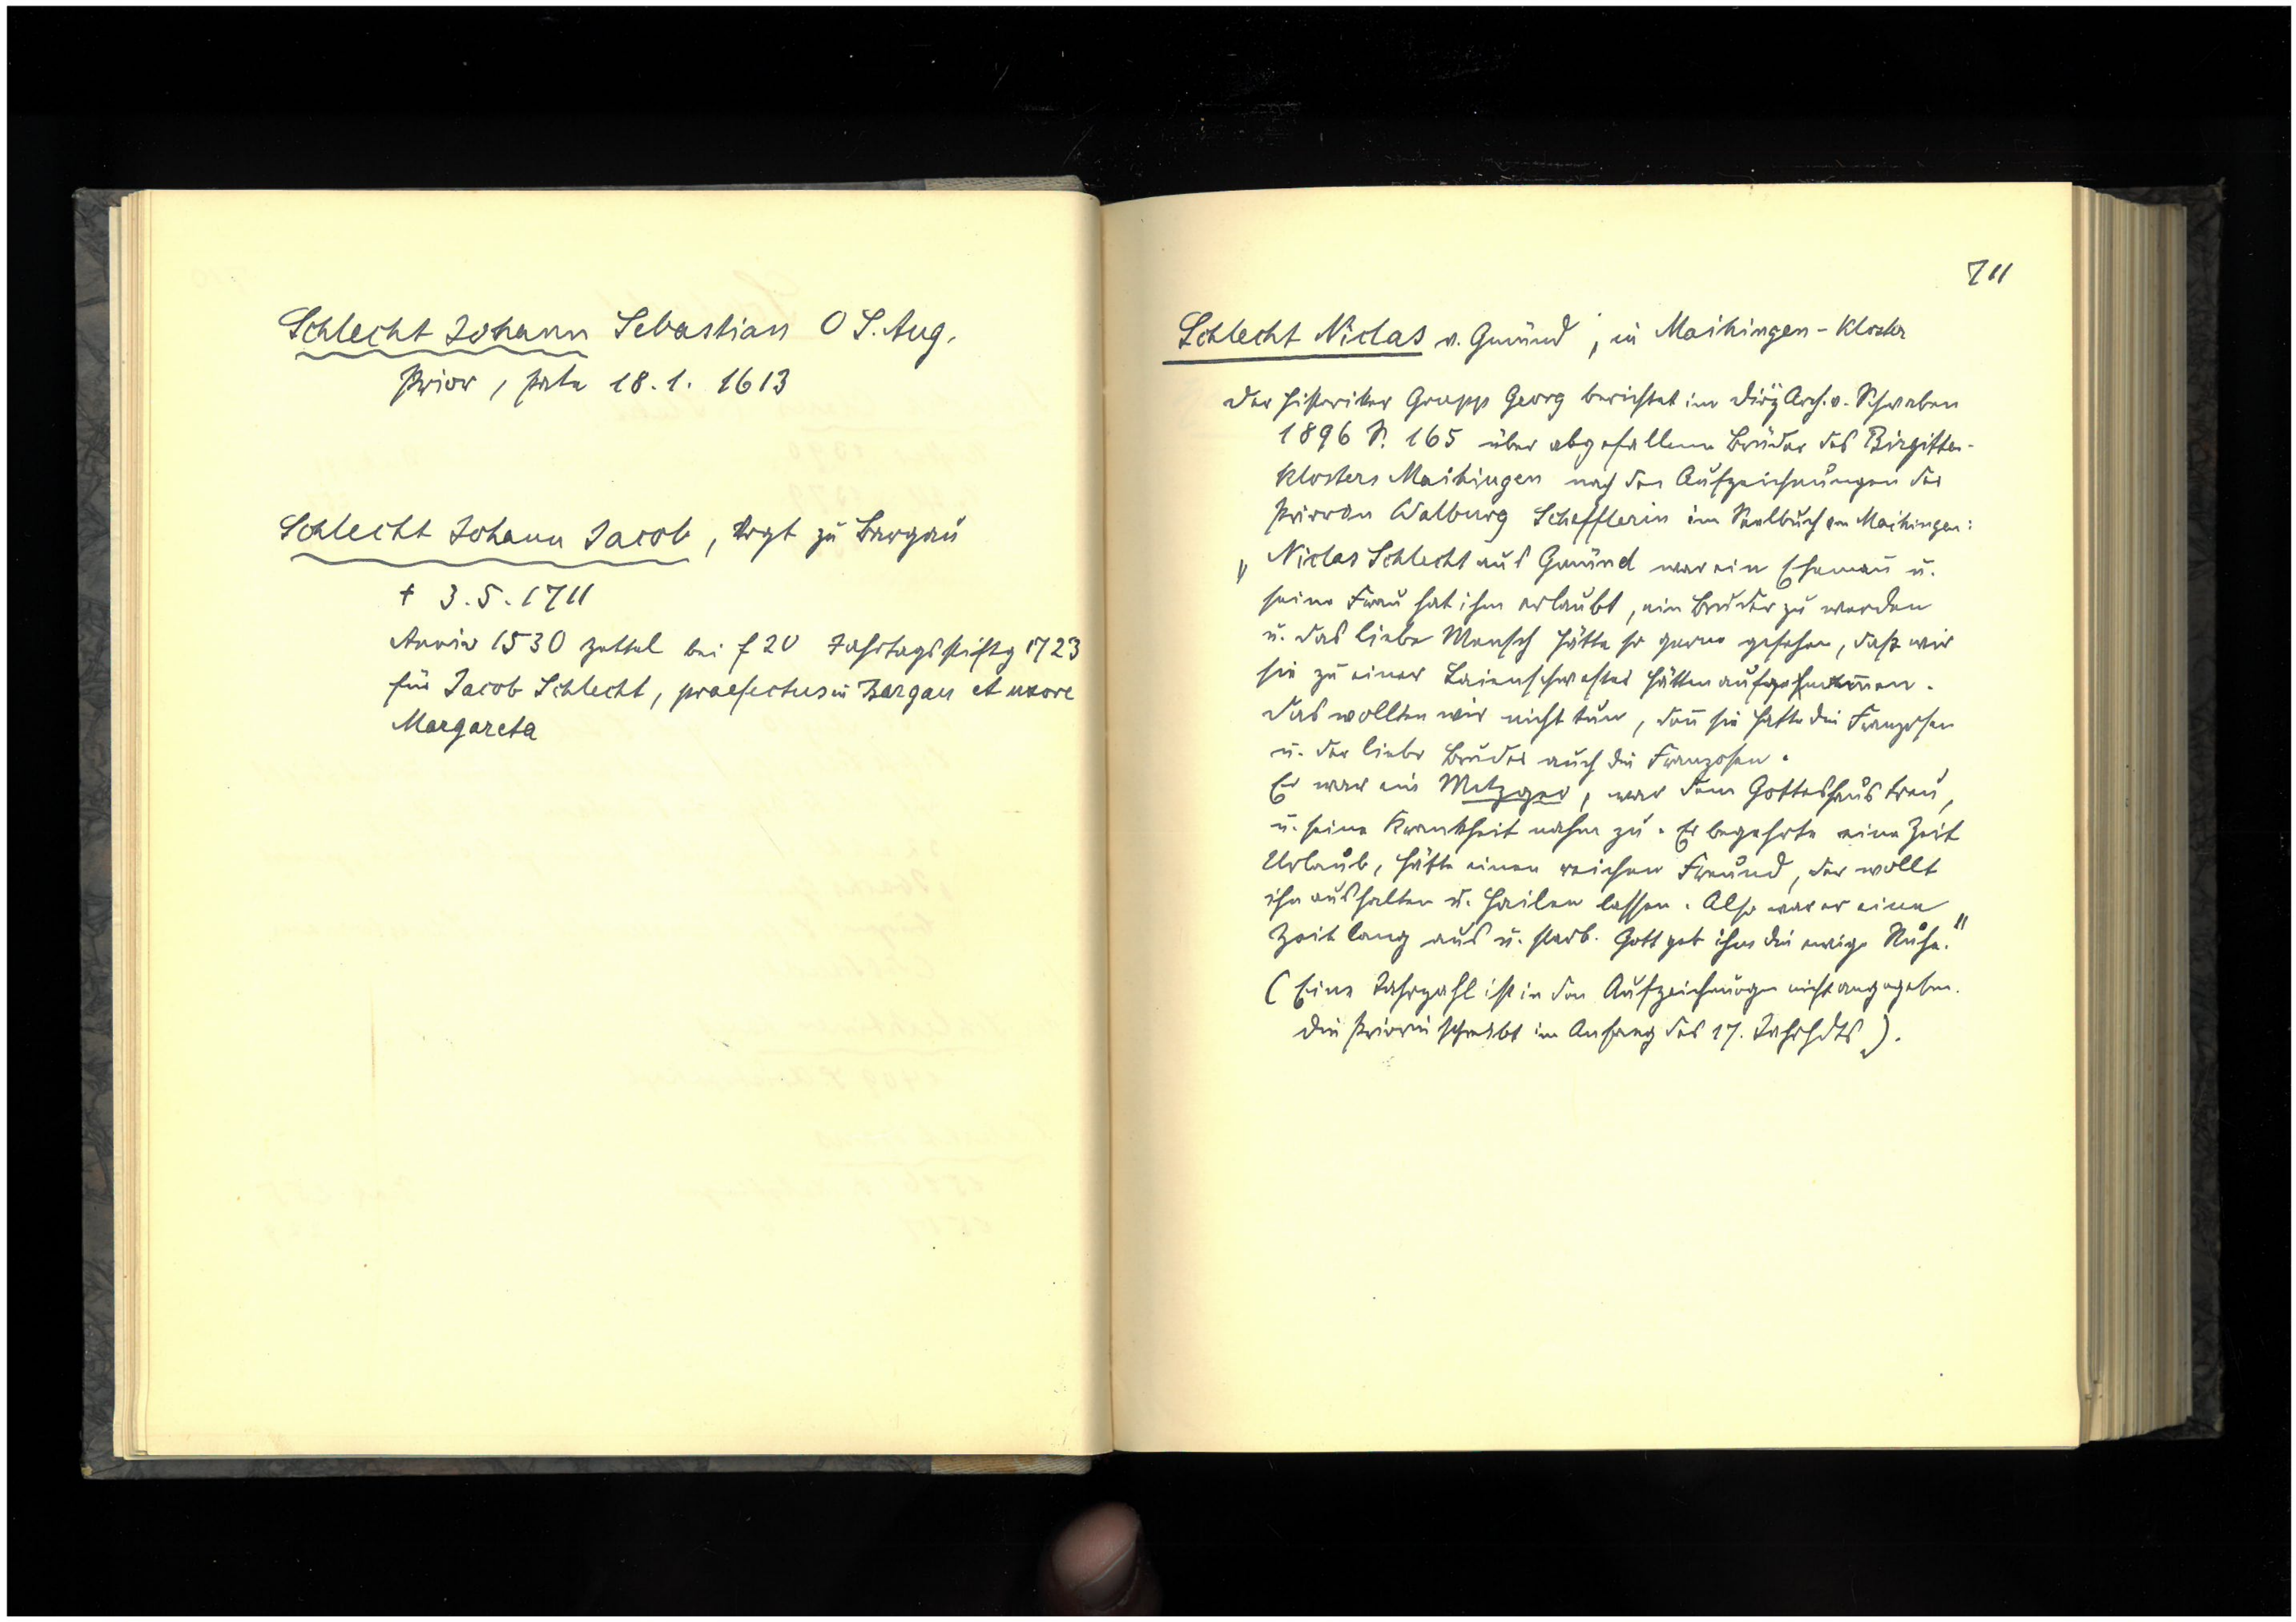 Schlecht Johann Sebastian O S. Aug.
Prior, 18.1.1613
Schlecht Johann Jacob, Vogt zu Bargau
† 3.5.1711
Anniv 1530 Zettel bei f 20 Jahrtagsstiftg 1723
für Jacob Schlecht, praefectus in Bargau et uxore
Margareta
711
Schlecht Niclas v. Gmünd, in Maihingen-Kloster
Der Historiker Grupp Georg berichtet im Diöz Arch. v. Schwaben
1896 S. 165 über abgefallene Brüder des Birgitten-
klosters Maihingen nach den Aufzeichnungen der
Priorin Walburg Schefflerin im Saalbuch von Maihingen:
"Niclas Schlecht aus Gmünd war ein Ehemañ u.
seine Frau hat ihm erlaubt, ein Bruder zu werden
u. das liebe Mensch hätte so gerne gesehen, daß wir
sie zu einer Laienschwester hätten aufgenom̄en.
Das wollten wir nicht tun, deñ sie hatte die Franzosen
u. der liebe Bruder auch die Franzosen.
Er war ein Metzger, war dem Gotteshaus treu,
u. seine Krankheit nahm zu. Er begehrte eine Zeit
Urlaub, hätte einen reichen Freund, der wollt
ihn aushalten u. heilen lassen. Also war er eine
Zeit lang aus u. starb. Gott geb ihm die ewige Ruhe."
(Eine Jahrzahl ist in den Aufzeichnungen nicht angegeben.
Die Priorin schreibt im Anfang des 17. Jahrhdts).